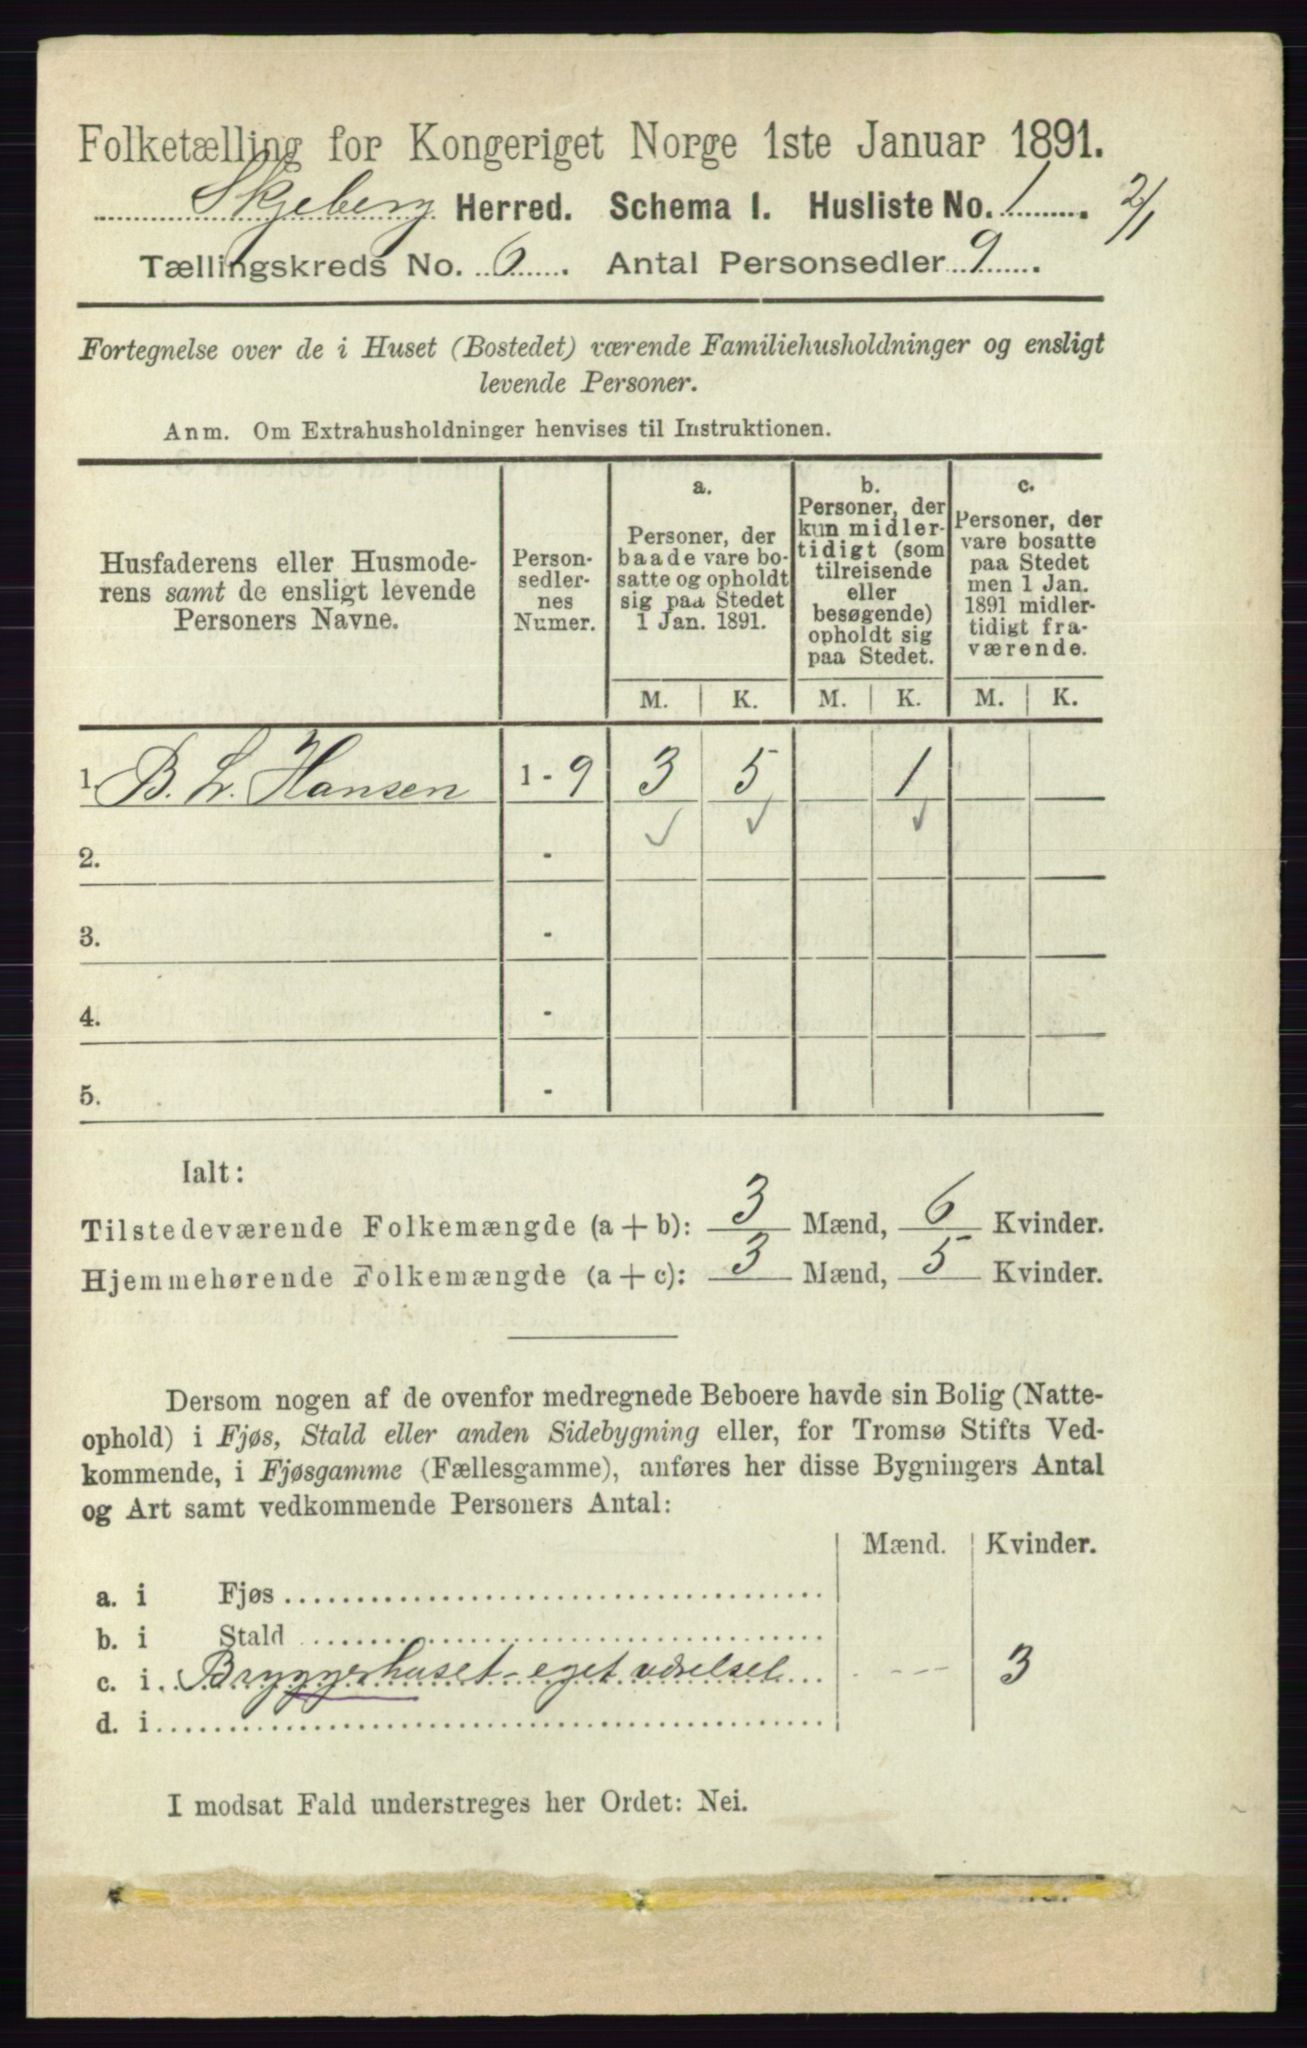 Folketælling for Kongeriget Norge 1ste Januar 1891.
Skjeberg Herred. Schema I. Husliste No. 1 2/1
Tællingskreds No. 6 Antal Personsedler 9
Fortegnelse over de i Huset (Bostedet) værende Familiehusholdninger og ensligt
levende Personer.
Anm. Om Extrahusholdninger henvises til Instruktionen.
Husfaderens eller Husmode-
rens samt de ensligt levende
Personers Navne.
Person-
sedler-
nes
Numer.
a.
Personer, der
baade vare bo-
satte og opholdt
sig paa Stedet
1 Jan. 1891.
b.
Personer, der
kun midler-
tidigt (som
tilreisende
eller
besøgende)
opholdt sig
paa Stedet.
c.
Personer, der
vare bosatte
paa Stedet
men 1 Jan.
1891 midler-
tidigt fra-
værende.
M. K. M. K. M. K.
1. B. L. Hansen 1 - 9 3 5 1
2. -
3. -
4. -
5. -
Ialt:
Tilstedeværende Folkemængde (a + b): 3 Mænd, 6 Kvinder.
Hjemmehørende Folkemængde (a + c): 3 Mænd, 5 Kvinder.
Dersom nogen af de ovenfor medregnede Beboere havde sin Bolig (Natte-
ophold) i Fjøs, Stald eller anden Sidebygning eller, for Tromsø Stifts Ved-
kommende, i Fjøsgamme (Fællesgamme), anføres her disse Bygningers Antal
og Art samt vedkommende Personers Antal:
Mænd. Kvinder.
a. i Fjøs
b. i Stald
c. i Bryggerhuset - eget værelse - - - 3
d. i
I modsat Fald understreges her Ordet: Nei.